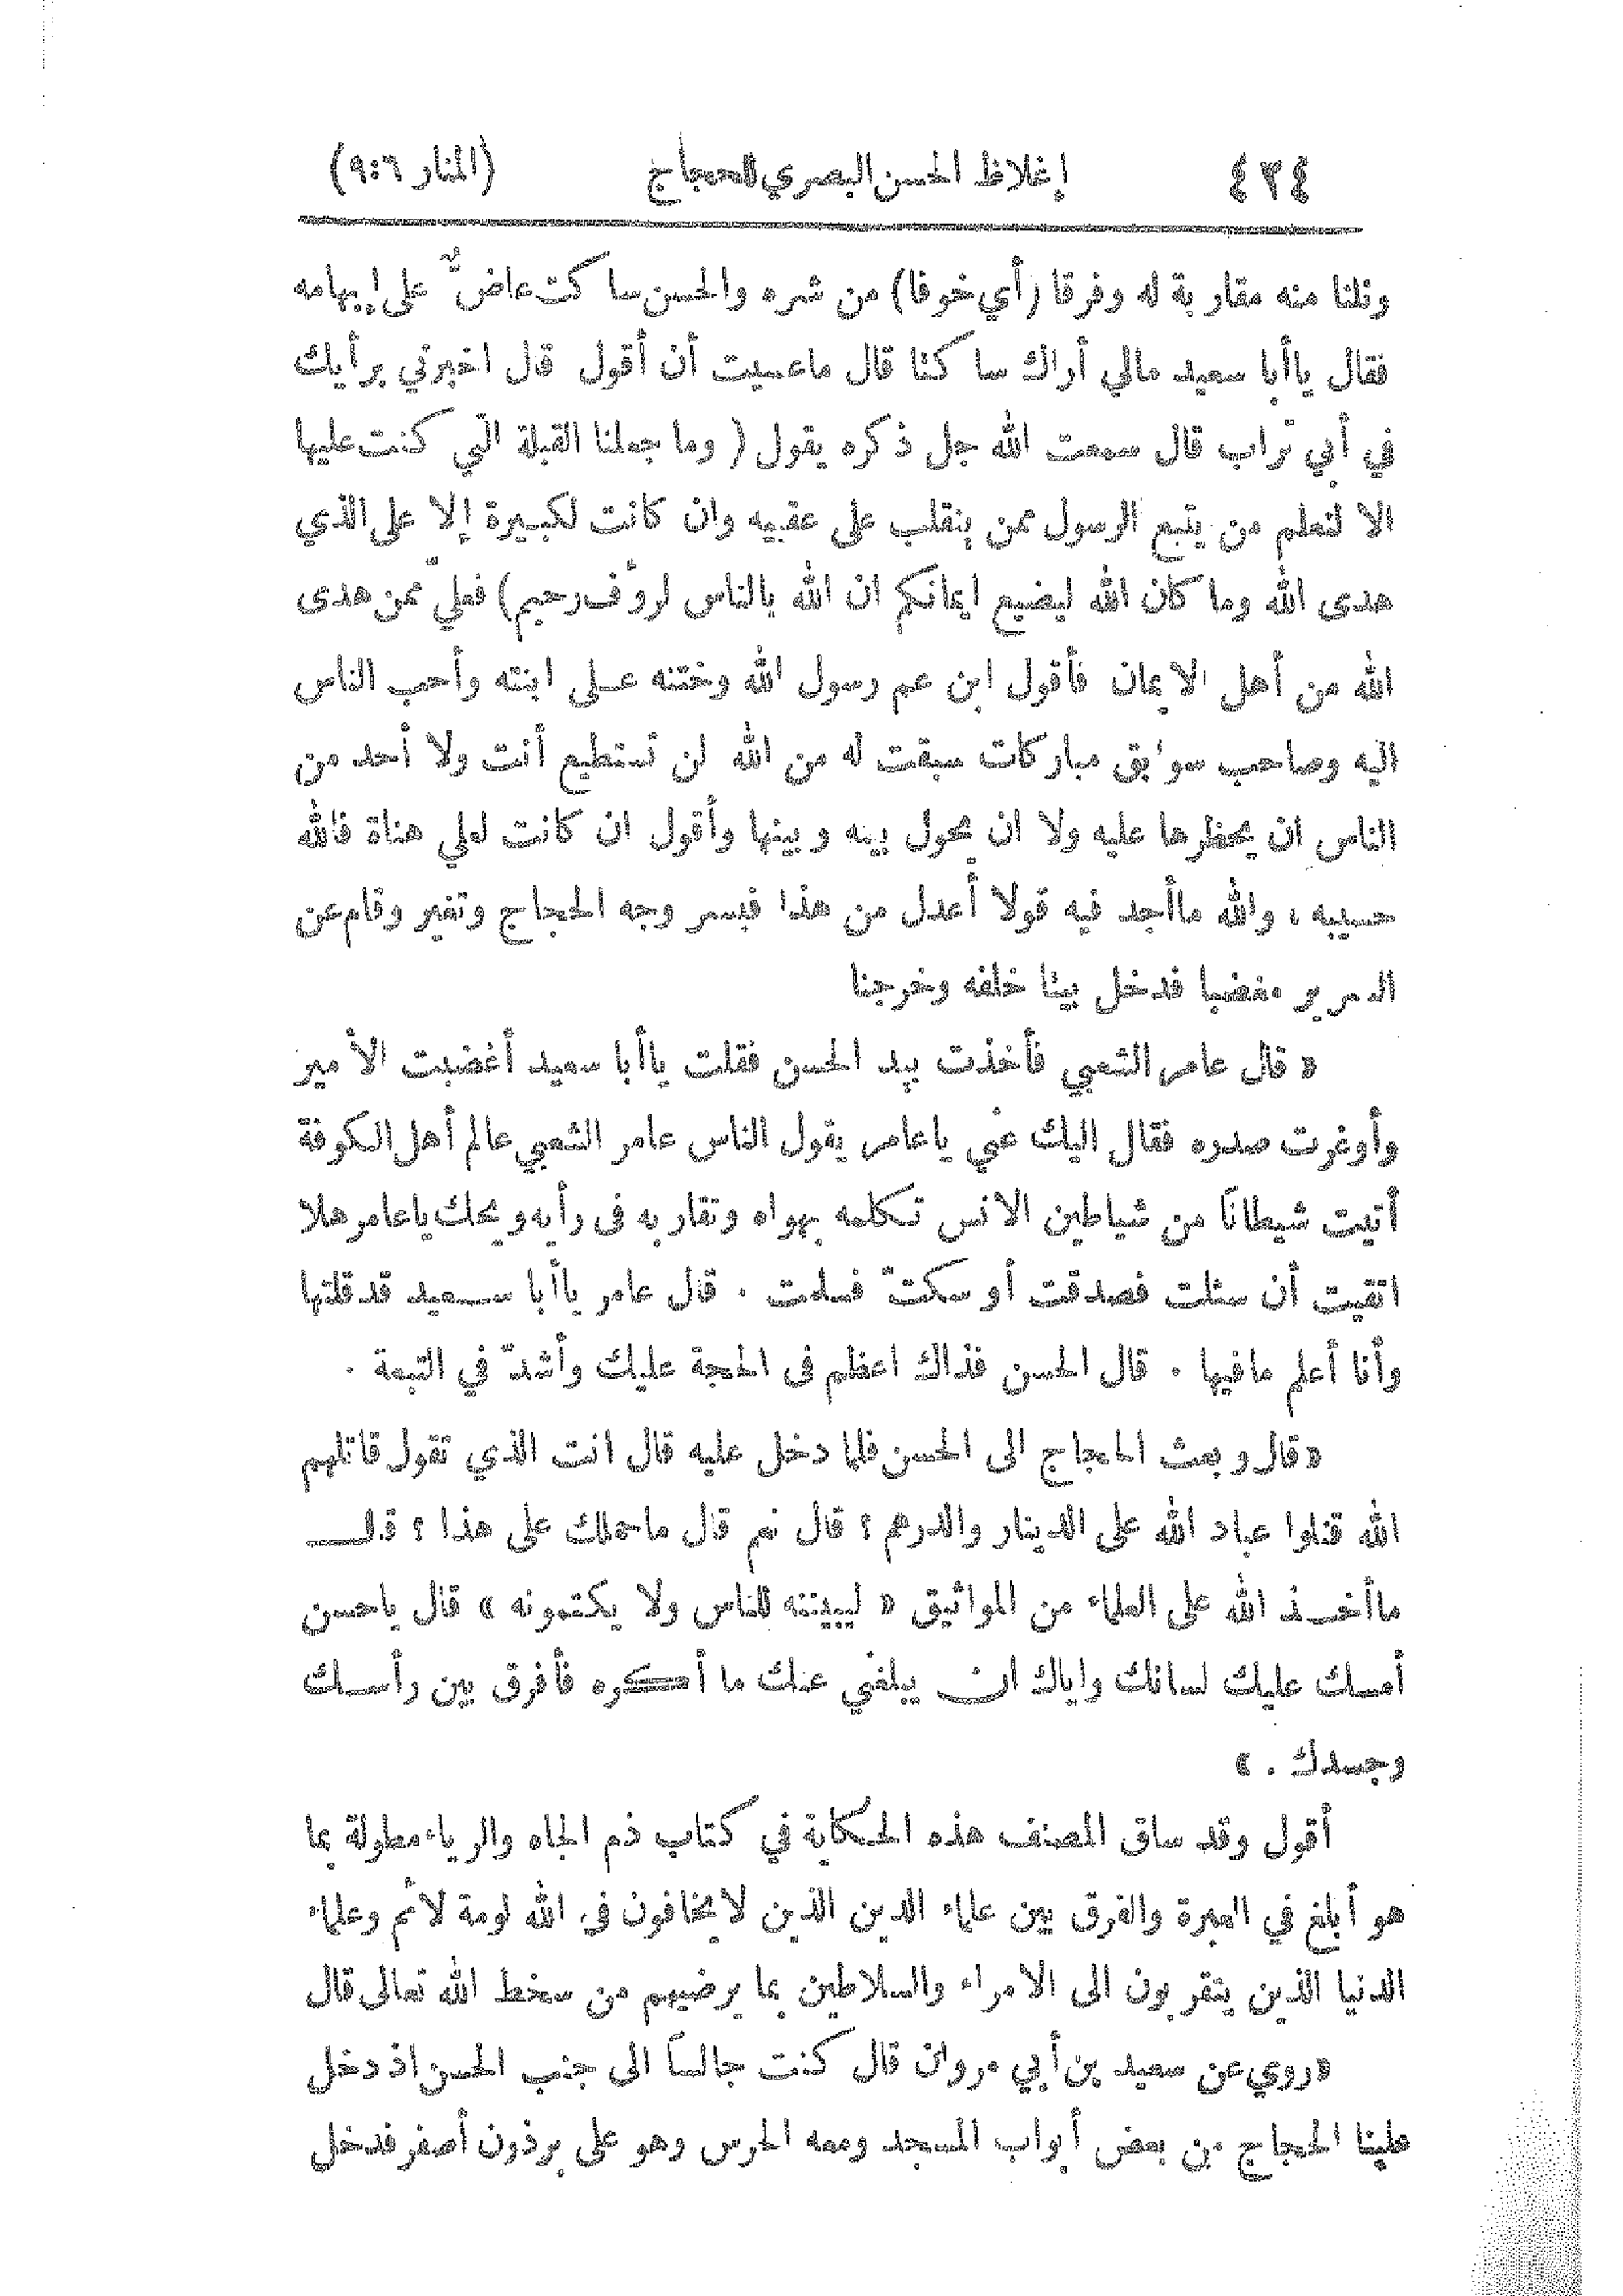 ٤٣٤ إغلاظ الحسن البصري للحجاج (المنار ٩:٦)
ونلنا منه مقاربة له وفرقا (أي خوفا) من شره والحسن ساكت عاضٌّ على إبهامه
فقال ياأبا سعيد مالي أراك ساكتا قال ماعسيت أن أقول قال اخبرني برأيك
في أبي تراب قال سمعت الله جل ذكره يقول ( وما جعلنا القبلة التي كنت عليها
الا لنعلم من يتبع الرسول ممن ينقلب على عقبيه وان كانت لكبيرة إلا على الذي
هدى الله وما كان الله ليضيع ايمانكم ان الله بالناس لرؤف رحيم) فعليّ ممن هدى
الله من أهل الايمان فأقول ابن عم رسول الله وختنه عــلى ابنته وأحب الناس
اليه وصاحب سوابق مباركات سبقت له من الله لن تستطيع أنت ولا أحد من
الناس ان يحظرها عليه ولا ان يحول بينه وبينها وأقول ان كانت لعلي هناة فالله
حسيبه ، والله ماأجد فيه قولا أعدل من هذا فبسر وجه الحجاج وتغير وقام عن
السرير مغضبا فدخل بيتا خلفه وخرجنا
« قال عامر الشعبي فأخذت بيد الحسن فقلت ياأبا سعيد أغضبت الأمير
وأوغرت صدره فقال اليك عني ياعامر يقول الناس عامر الشعبي عالم أهل الكوفة
أتيت شيطانًا من شياطين الانس تكلمه بهواه وتقاربه فى رأيه ويحك ياعامر هلا
اتقيت أن سئلت فصدقت أو سكتّ فسلمت . قال عامر ياأبا ســعيد قد قلتها
وأنا أعلم مافيها . قال الحسن فذاك اعظم فى الحجة عليك وأشدّ في التبعة .
«قال وبعث الحجاج الى الحسن فلما دخل عليه قال انت الذي تقول قاتلهم
الله قتلوا عباد الله على الدينار والدرهم ؟ قال نعم قال ماحملك على هذا ؟ قال
ماأخــذ الله على العلماء من المواثيق « ليبيننه للناس ولا يكتمونه » قال ياحسن
أمسك عليك لسانك واياك ان يبلغني عنك ما أكره فأفرق بين رأسـك
وجسدك . »
أقول وقد ساق المصنف هذه الحكاية في كتاب ذم الجاه والرياء مطولة بما
هو أبلغ في العبرة والفرق بين علماء الدين الذين لايخافون في الله لومة لائم وعلماء
الدنيا الذين يتقربون الى الامراء والسلاطين بما يرضيهم من سخط الله تعالى قال
«روي عن سعيد بن أبي مروان قال كنت جالسًا الى جنب الحسن اذ دخل
علينا الحجاج من بعض أبواب المسجد ومعه الحرس وهو على برذون أصفر فدخل